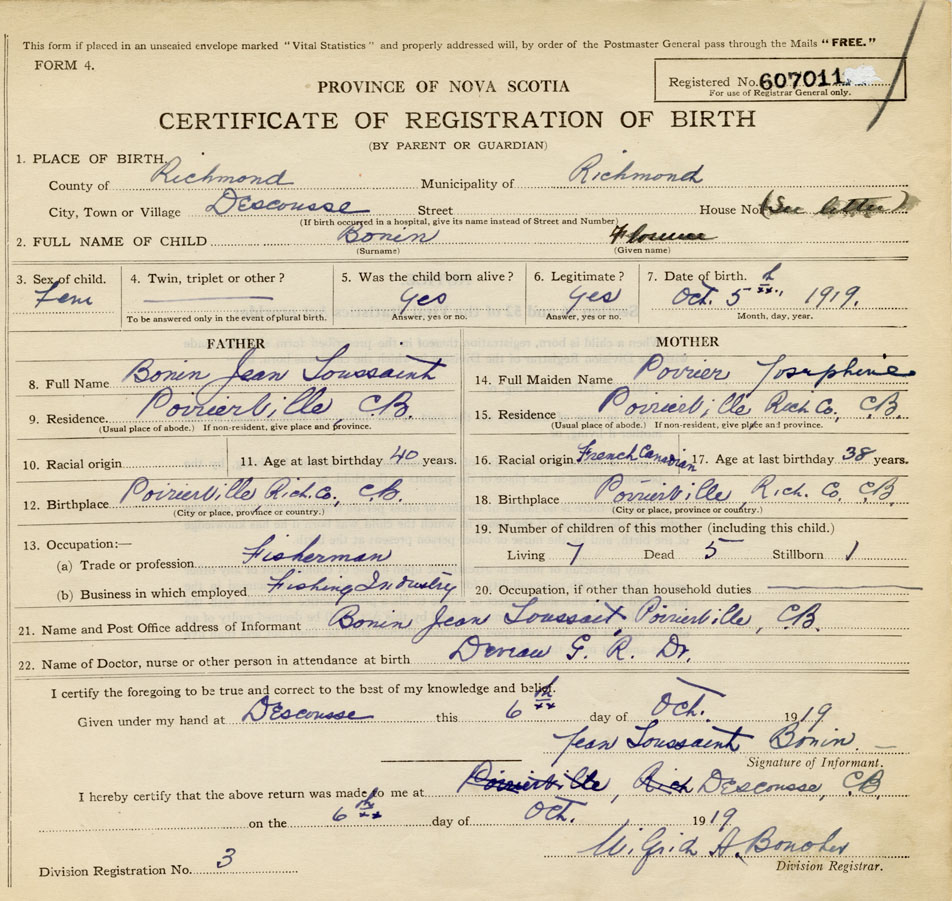 This form if placed in an unsealed envelope marked "Vital Statistics" and properly addressed will, by order of the Postmaster General pass through the Mails "FREE."
FORM 4.
Registered No. 607011
For use of Registrar General only.
PROVINCE OF NOVA SCOTIA
CERTIFICATE OF REGISTRATION OF BIRTH
(BY PARENT OR GUARDIAN)
1. PLACE OF BIRTH,
County of Richmond Municipality of Richmond
City, Town or Village Descousse Street House No. (See letter)
(If birth occurred in a hospital, give its name instead of Street and Number)
2. FULL NAME OF CHILD Bonin Florence
(Surname) (Given name)
3. Sex of child. 4. Twin, triplet or other? 5. Was the child born alive? 6. Legitimate? 7. Date of birth.
Fem Yes Yes Oct. 5th, 1919.
To be answered only in the event of plural birth. Answer, yes or no. Answer, yes or no. Month, day, year.
FATHER MOTHER
8. Full Name Bonin Jean Toussaint 14. Full Maiden Name Poirier Josephine
9. Residence. Poirierville, C.B. 15. Residence Poirierville Rich Co, C.B.
(Usual place of abode.) If non-resident, give place and province. (Usual place of abode.) If non-resident, give place and province.
10. Racial origin 11. Age at last birthday 40 years. 16. Racial origin French Canadian 17. Age at last birthday 38 years.
12. Birthplace Poirierville Rich. Co., C.B. 18. Birthplace Poirierville, Rich. Co, C.B
(City or place, province or country.) (City or place, province or country.)
19. Number of children of this mother (including this child.)
13. Occupation:—
(a) Trade or profession Fisherman Living 7 Dead 5 Stillborn 1
(b) Business in which employed Fishing Industry 20. Occupation, if other than household duties
21. Name and Post Office address of Informant Bonin Jean Toussait, Poirierville, C.B.
22. Name of Doctor, nurse or other person in attendance at birth Deveau G. R. Dr.
I certify the foregoing to be true and correct to the best of my knowledge and belief.
Given under my hand at Descousse this 6th day of Oct. 1919
Jean Toussaint Bonin.
Signature of Informant.
I hereby certify that the above return was made to me at Poirierville, Rich Descousse, C.B.
on the 6th day of Oct. 1919
Wilfrid A.
Division Registrar.
Division Registration No. 3